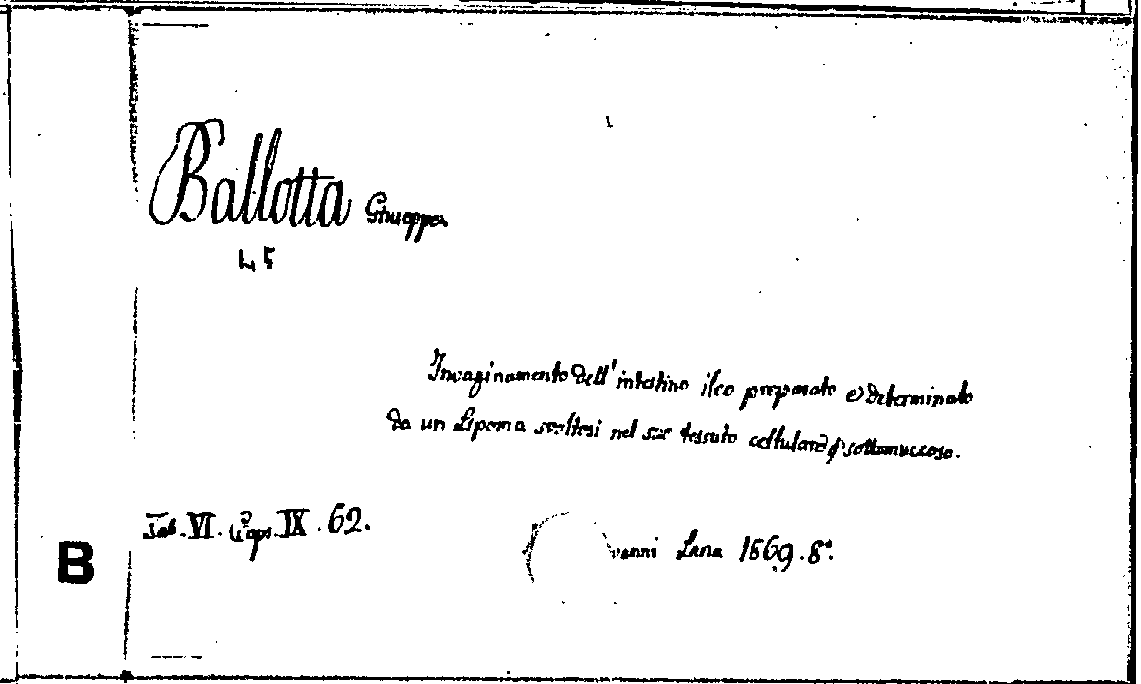 Ballotta Giuseppe
45
Invaginamento dell' intestino ileo preparato e determinato
da un Lipoma svoltosi nel suo tessuto cellulare sottomuccoso.
Tab. VI. Caps. IX. 62.
vanni Lana 1869. 8°.
B